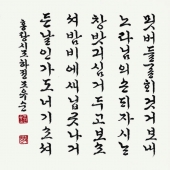 묏버들 갈희 것거 보내
노라 님의 손듸 자시는
창밧긔 심거 두고 보쇼
셔 밤비에 새닙 곳 나거
든 날인가도 너기쇼셔
홍랑 시조 조유순